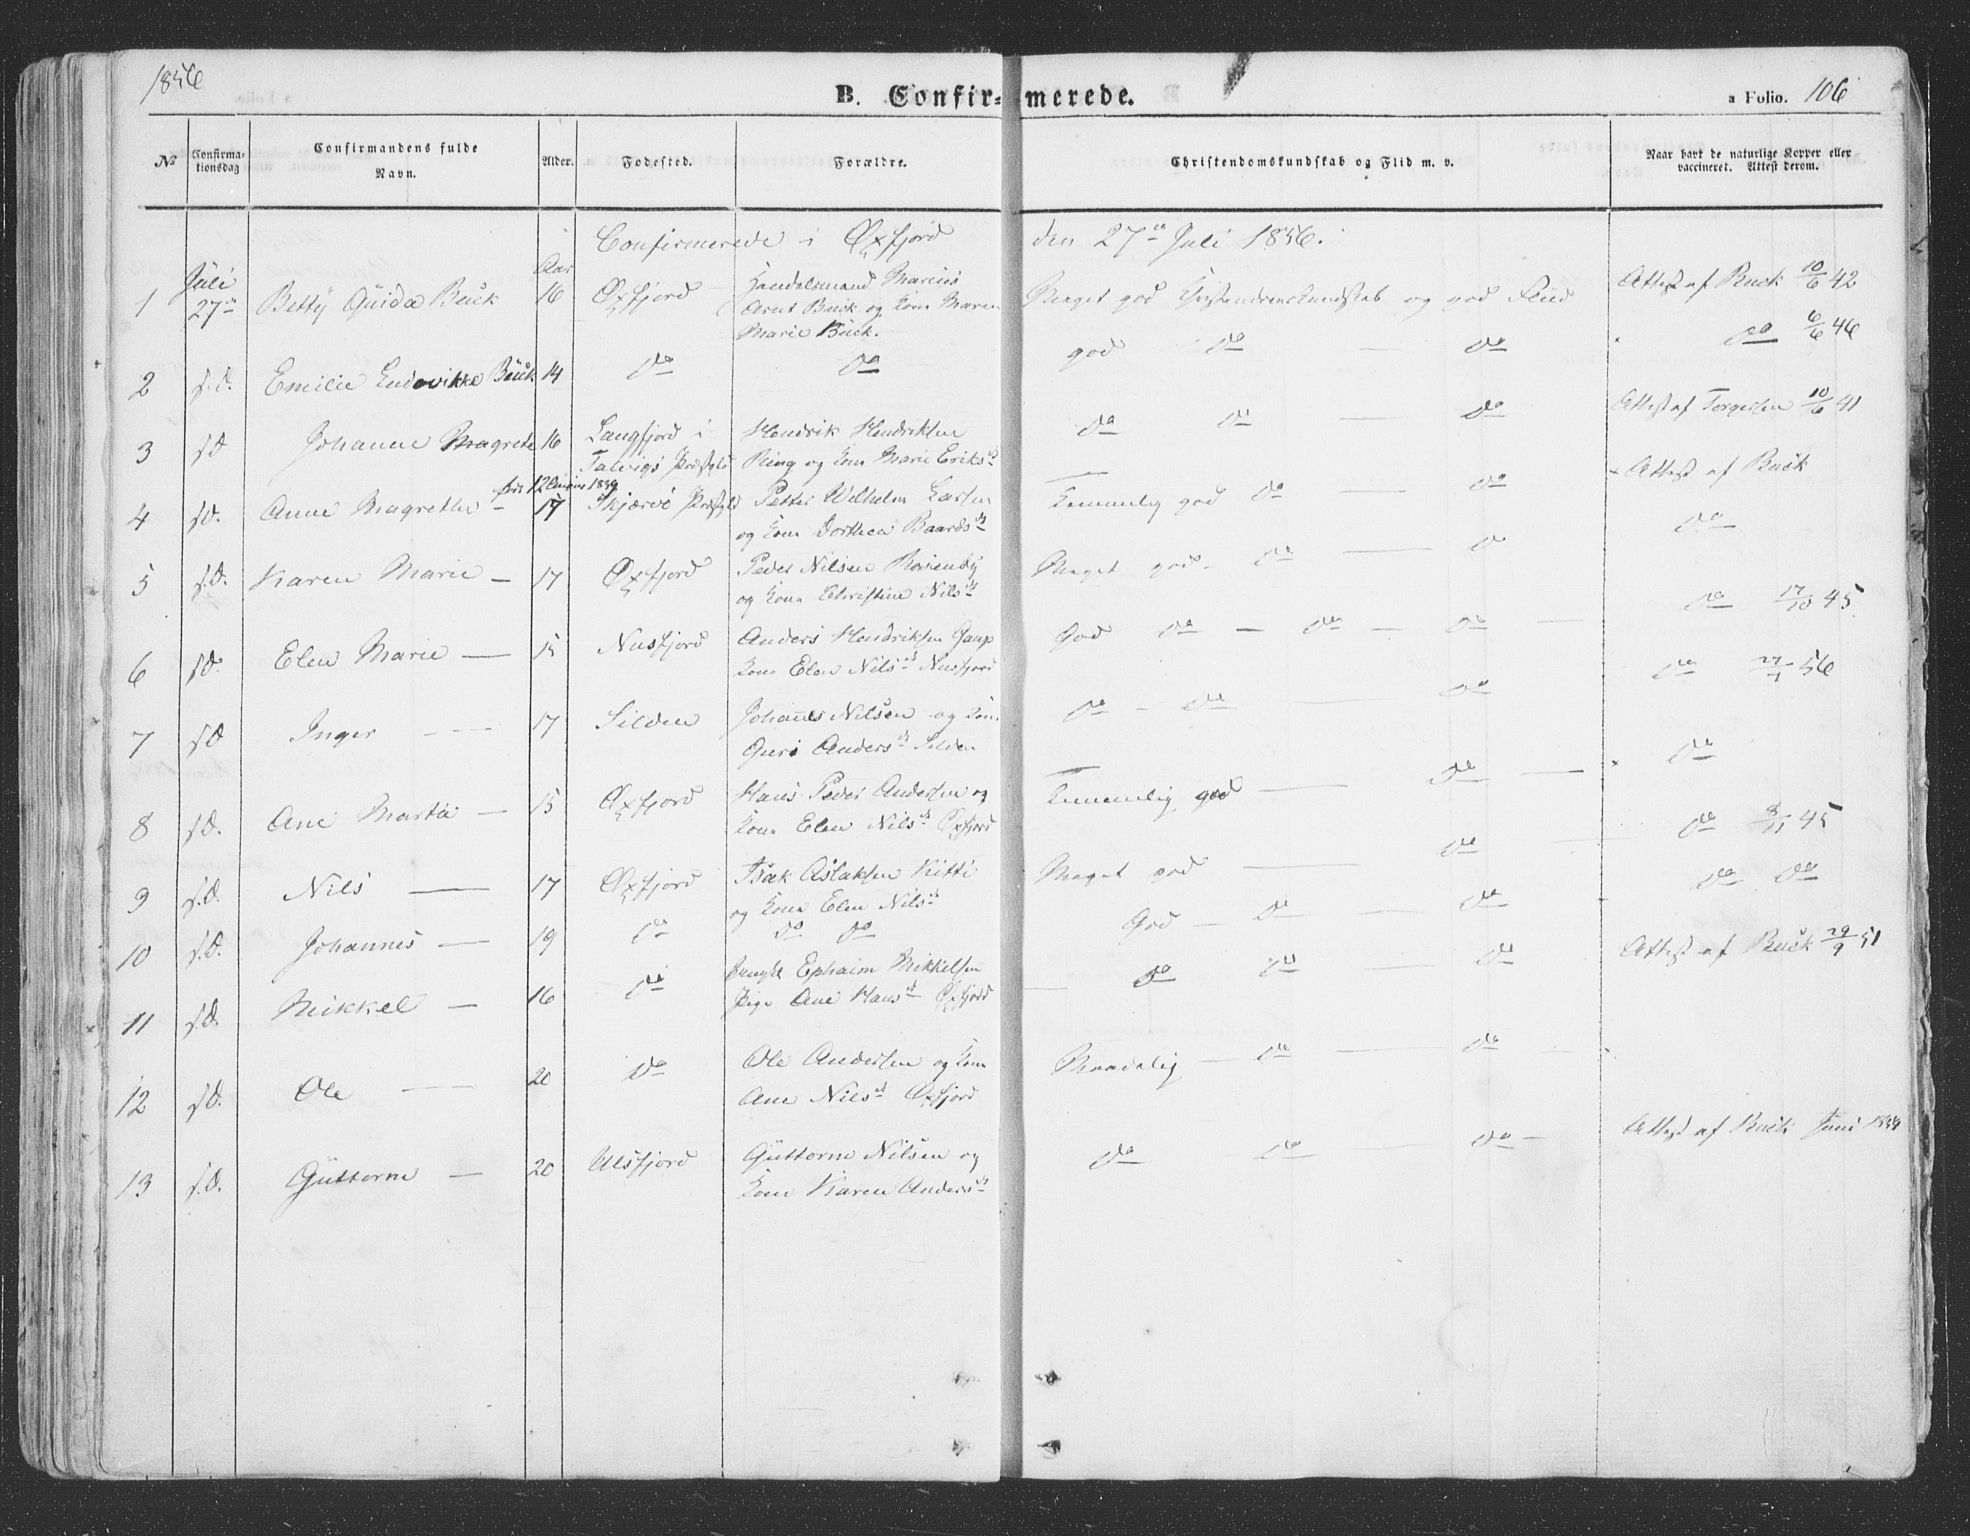 1856
B. Confir= merede.
a Folio. 106
No Confirma-tionsdag Confirmandens fulde Navn. Alder. Fødested. Forældre. Christendomskundskab og Flid m. v. Naar havt de naturlige Kopper eller vaccineret. Attest derom.
Confirmerede i Øxfjord den 27de Juli 1856.
Aar
1 Juli 27de Betty Guida Buck 16 Øxfjord Handelsmand Marcus Meget god Christendomskundskab og god Flid Attest af Buck 10/6 42
Arnt Buck og Kone Maren
Marie Buck.
2 s.D. Emilie Ludovikke Buck 14 do do god do — do do 6/6 46
3 s.D. Johanne Magrete 16 Langfjord i Hendrik Hendriksen do do — do Attest af Torgersen 10/6 41
Talvigs Præstgld Ring og Kone Marie Eriksdt
født 12 1839
4 s.D. Anne Magrethe — 17 Skjærvø Præstgld Petter Wilhelm Larsen Temmelig god do — do Attest af Buck
og Kone Dorthea Baardsdt
5 s.D. Karen Marie — 17 Øxfjord Peder Nilsen Meget god do — do do
og Kone Christine Nilsdt
6 s.D. Elen Marie — 15 Nusfjord Anders Hendriksen Gaup God do — do — do — do 17/10 45
Kone Elen Nilsdt Nusfjord
7 s.D. Inger — 17 Silden Johannes Nilsen og Kone do — do do do 27/7 56
Guro Andersdt Silden
8 s.D. Ane Marta — 15 Øxfjord Hans Peder Andersen og Temmelig god — do — do
Kone Elen Nilsdt Øxfjord
9 s.D. Nils — 17 Øxfjord Isak Aslaksen Kitti Meget god — do do 8/11 45
og Kone Elen Nilsdt
10 s.D. Johannes — 19 do do do God — do — do do do
11 s.D. Mikkel — 16 do Ephraim Mikkelsen — do do do Attest af Buck 29/9 51
Pige Ane Hansdt Øxfjord
12 s.D. Ole — 20 do Ole Andersen og Kone Maadelig — do — do
Ane Nilsdt Øxfjord
13 s.D. Guttorm — 20 Ulsfjord Guttorm Nilsen og do do do — Attest af Buck Juni
Kone Karen Andersdt